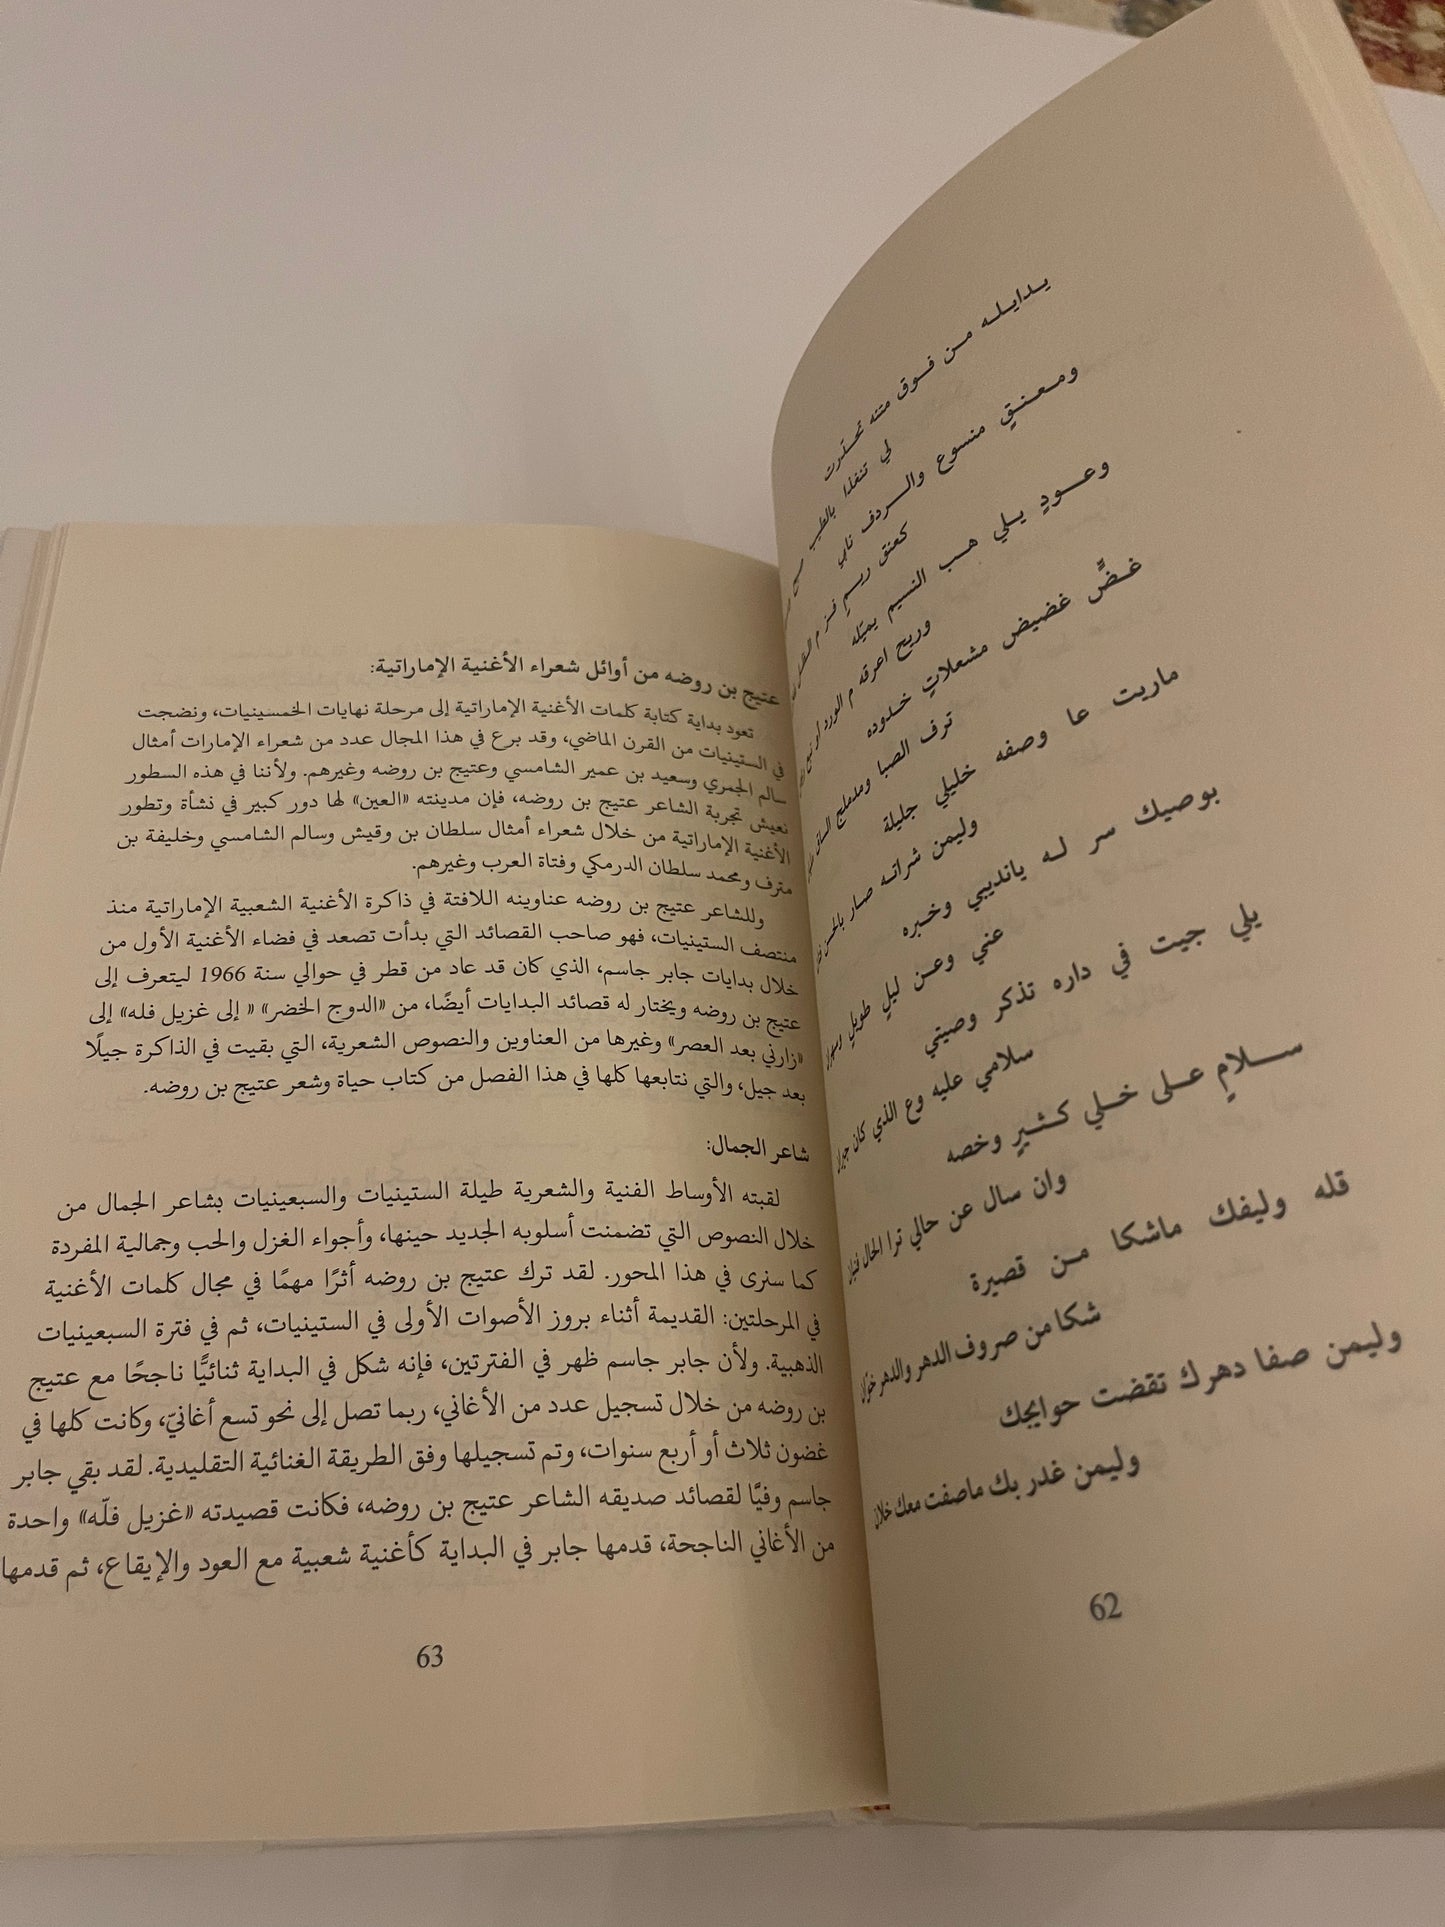 يدايله من فوق متنه تحدّرت
لي تنغذا بالطيب
ومعنقٍ منسوع والردف نابي
كعنق ريمٍ
وعودٍ يلي هب النسيم يميّله
وريح اعرقه م الورد
غضٍّ غضيض مشعلاتٍ خدوده
ترف الصبا ومدملج الساق
ماريت عا وصفه خليلي جليلة
وليمن شراته صار بالحسن
بوصيك سر له يانديبي وخبره
عني وعن ليلٍ طويلٍ
يلي جيت في داره تذكر وصيتي
سلامي عليه وع الذي كان
سلامٍ على خلي كثيرٍ وخصه
وان سال عن حالي ترا الحال
قله وليفك ماشكا من قصيرة
شكا من صروف الدهر والدهر خوّان
وليمن صفا دهرك تقضت حوايجك
وليمن غدر بك ماصفت معك خلان
62
عتيج بن روضه من أوائل شعراء الأغنية الإماراتية:
تعود بداية كتابة كلمات الأغنية الإماراتية إلى مرحلة نهايات الخمسينيات، ونضجت
في الستينيات من القرن الماضي، وقد برع في هذا المجال عدد من شعراء الإمارات أمثال
سالم الجمري وسعيد بن عمير الشامسي وعتيج بن روضه وغيرهم. ولأننا في هذه السطور
نعيش تجربة الشاعر عتيج بن روضه، فإن مدينته «العين» لها دور كبير في نشأة وتطور
الأغنية الإماراتية من خلال شعراء أمثال سلطان بن وقيش وسالم الشامسي وخليفة بن
مترف ومحمد سلطان الدرمكي وفتاة العرب وغيرهم.
وللشاعر عتيج بن روضه عناوينه اللافتة في ذاكرة الأغنية الشعبية الإماراتية منذ
منتصف الستينيات، فهو صاحب القصائد التي بدأت تصعد في فضاء الأغنية الأول من
خلال بدايات جابر جاسم، الذي كان قد عاد من قطر في حوالي سنة 1966 ليتعرف إلى
عتيج بن روضه ويختار له قصائد البدايات أيضًا، من «الدوج الخضر» « إلى غزيل فله» إلى
«زارني بعد العصر» وغيرها من العناوين والنصوص الشعرية، التي بقيت في الذاكرة جيلًا
بعد جيل، والتي نتابعها كلها في هذا الفصل من كتاب حياة وشعر عتيج بن روضه.
شاعر الجمال:
لقبته الأوساط الفنية والشعرية طيلة الستينيات والسبعينيات بشاعر الجمال من
خلال النصوص التي تضمنت أسلوبه الجديد حينها، وأجواء الغزل والحب وجمالية المفردة
كما سنرى في هذا المحور. لقد ترك عتيج بن روضه أثرًا مهمًا في مجال كلمات الأغنية
في المرحلتين: القديمة أثناء بروز الأصوات الأولى في الستينيات، ثم في فترة السبعينيات
الذهبية. ولأن جابر جاسم ظهر في الفترتين، فإنه شكل في البداية ثنائيًّا ناجحًا مع عتيج
بن روضه من خلال تسجيل عدد من الأغاني، ربما تصل إلى نحو تسع أغانيّ، وكانت كلها في
غضون ثلاث أو أربع سنوات، وتم تسجيلها وفق الطريقة الغنائية التقليدية. لقد بقي جابر
جاسم وفيًّا لقصائد صديقه الشاعر عتيج بن روضه، فكانت قصيدته «غزيل فلّه» واحدة
من الأغاني الناجحة، قدمها جابر في البداية كأغنية شعبية مع العود والإيقاع، ثم قدمها
63